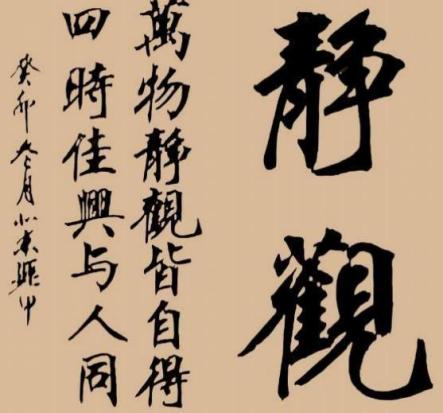 靜觀
萬物靜觀皆自得
四時佳興与人同
癸卯冬月小東